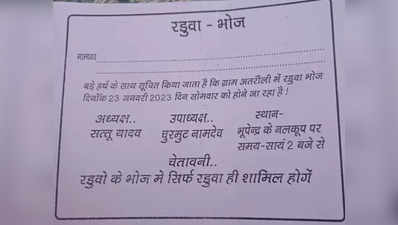 रडुवा - भोज
मान्यवर
बड़े हर्ष के साथ सूचित किया जाता है कि ग्राम अतरौली में रडुवा भोज
दिनाँक 23 जनवरी 2023 दिन सोमवार को होने जा रहा है !
अध्यक्ष.. उपाध्यक्ष.. स्थान-
सत्तू यादव घुरमुट नामदेव भूपेन्द्र के नलकूप पर
समय-सायं 2 बजे से
चेतावनी..
रडुवो के भोज मे सिर्फ रडुवा ही शामिल होगें